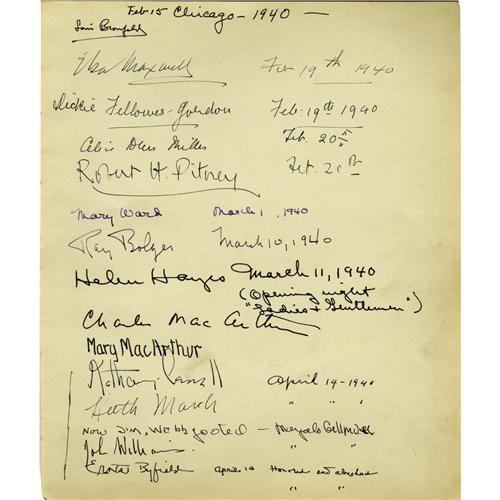 Feb 15 Chicago - 1940 -
Louis Bromfield
Elsa Maxwell Feb 19th 1940
Dickie Fellowes-Gordon Feb. 19th 1940
Alice Duer Miller Feb. 20th
Robert H. Pitney Feb. 21st
Mary Ward March 1, 1940
Ray Bolger March 10, 1940
Helen Hayes March 11, 1940
(Opening night
"Ladies & Gentlemen")
Charles MacArthur
Mary MacArthur
Katharine Cornell April 14-1940
" " "
Now Jim, Webb
John Williams " "
Ernest Byfield April 14
" "